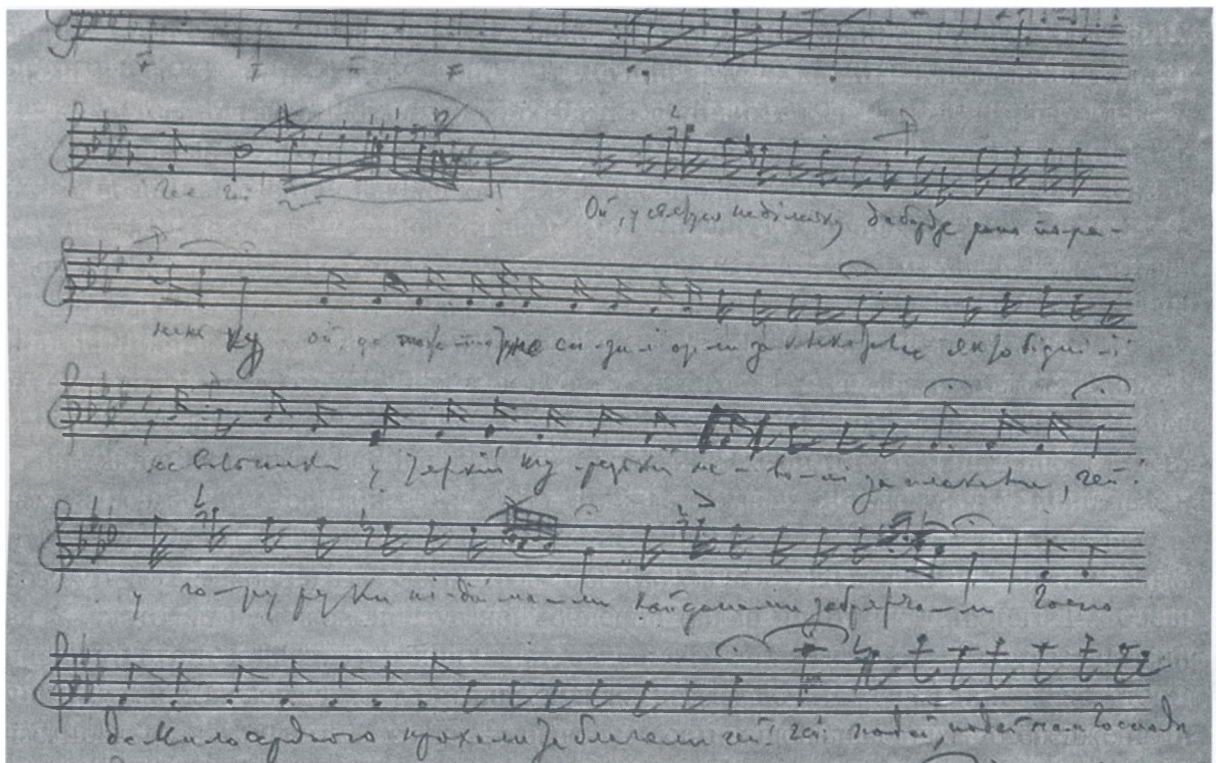 гей гей
Ой, у святую неділеньку да барзе рано по-ра-
нень ку ой, да то не си-зи-ї ор-ли заклекотали як то бідні-ї
не вольники у тяжкій ту-рецькій не-во-лі заплакали, гей!
у го-ру ру ки пі-дій-ма-ли кайданами забряжча-ли Госпо
да Милосердного прохали та благали гей! гей! подай, подай нам Господи